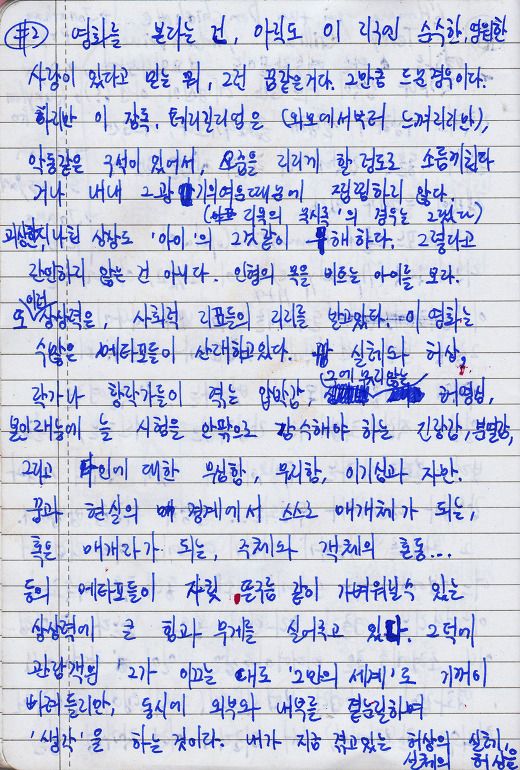 #2) 영화를 본다는 건, 아직도 이 지구엔 순수한, 영원한
사랑이 있다고 믿는 뭐, 그런 꿈같은거다. 그만큼 드문경우이다.
하지만 이 장족, 테리길리엄은 (외모에서부터 느껴지지만),
악동같은 구석이 있어서, 오줌을 지리게 할 정도로 소름끼친다
거나 내내 그 광기의여운때문에 찜찜하지 않다.
(리쿡의 의 경우는 그랬다)
괴상한, 나쁜 상상도 '아이'의 그것같이 무해하다. 그렇다고
간단하지 않은 건 아니다. 인형의 목을 비트는 아이를 보라.
또 이런 상상력은, 사회적 지표들의 지지를 받고있다. 이 영화는
수많은 메타포들이 산재하고있다. 실체와 허상,
작가나 황작가들이 겪는 압박감, 그에 굴리않는 허영심,
본인재능에 늘 시험을 안팎으로 감수해야 하는 긴장감, 분열감,
그리고 타인에 대한 무심함, 무리함, 이기심과 자만.
꿈과 현실의 경계에서 스스로 매개체가 되는,
혹은 매개자가 되는, 주체와 객체의 혼동...
등의 메타포들이 자칫 뜬구름 같이 가벼워질수 있는
상상력에 큰 힘과 무게를 실어주고 있다. 그덕에
관람객은 그가 이끄는 대로 '그만의 세계'로 기꺼이
빠져들지만, 동시에 외부와 내부를 곁눈질하며
'생각'을 하는 것이다. 내가 지금 겪고있는 허상의 실체,
실체의 허상을